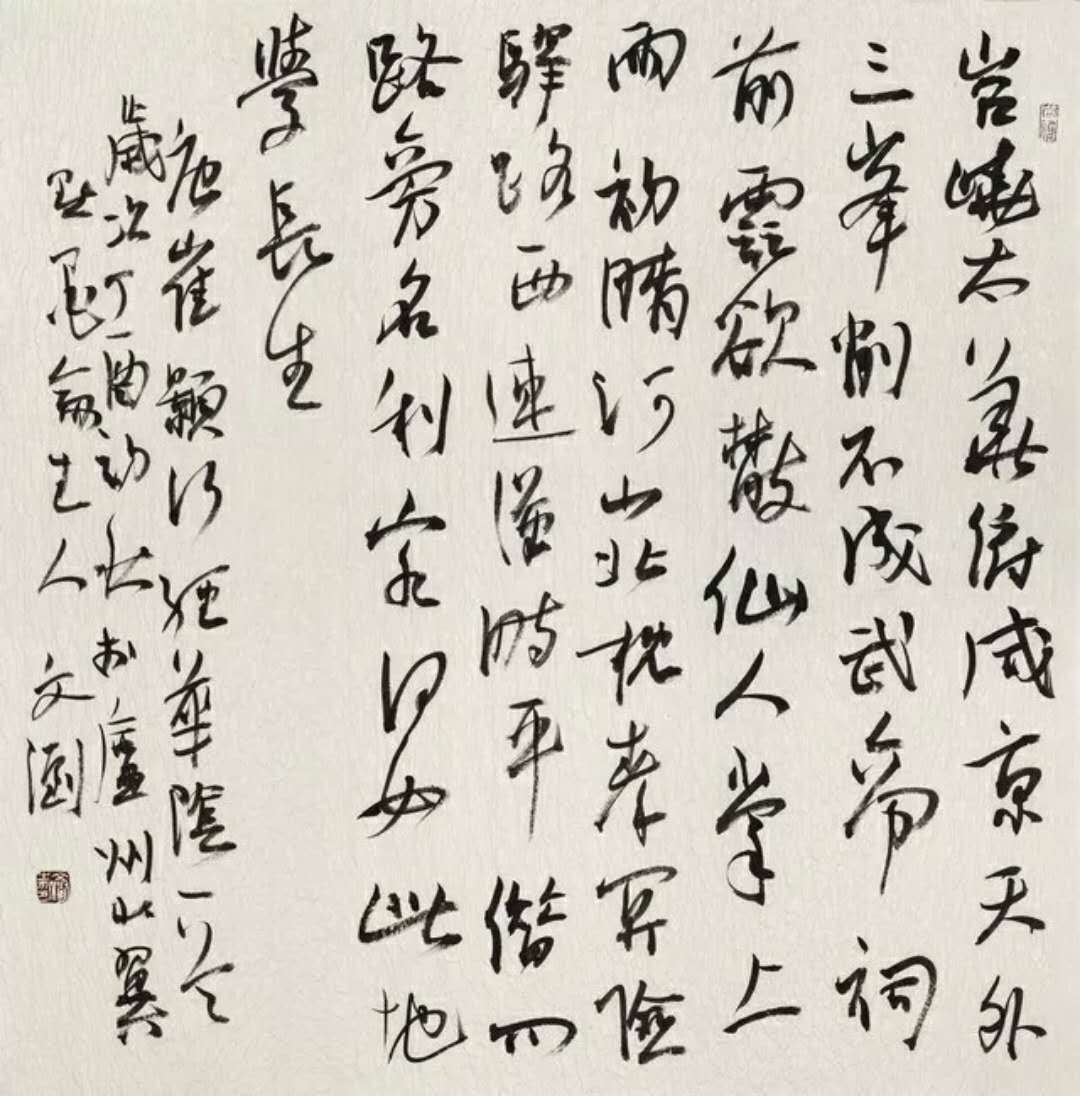 岧嶢太華俯咸京天外
三峯削不成武帝祠
前雲欲散仙人掌上
雨初晴河山北枕秦關險
驛路西連漢畤平借問
路旁名利客何如此地
學長生
唐崔顥行經華陰一首
歲次丁酉初秋於廬州北翼
墨主人文